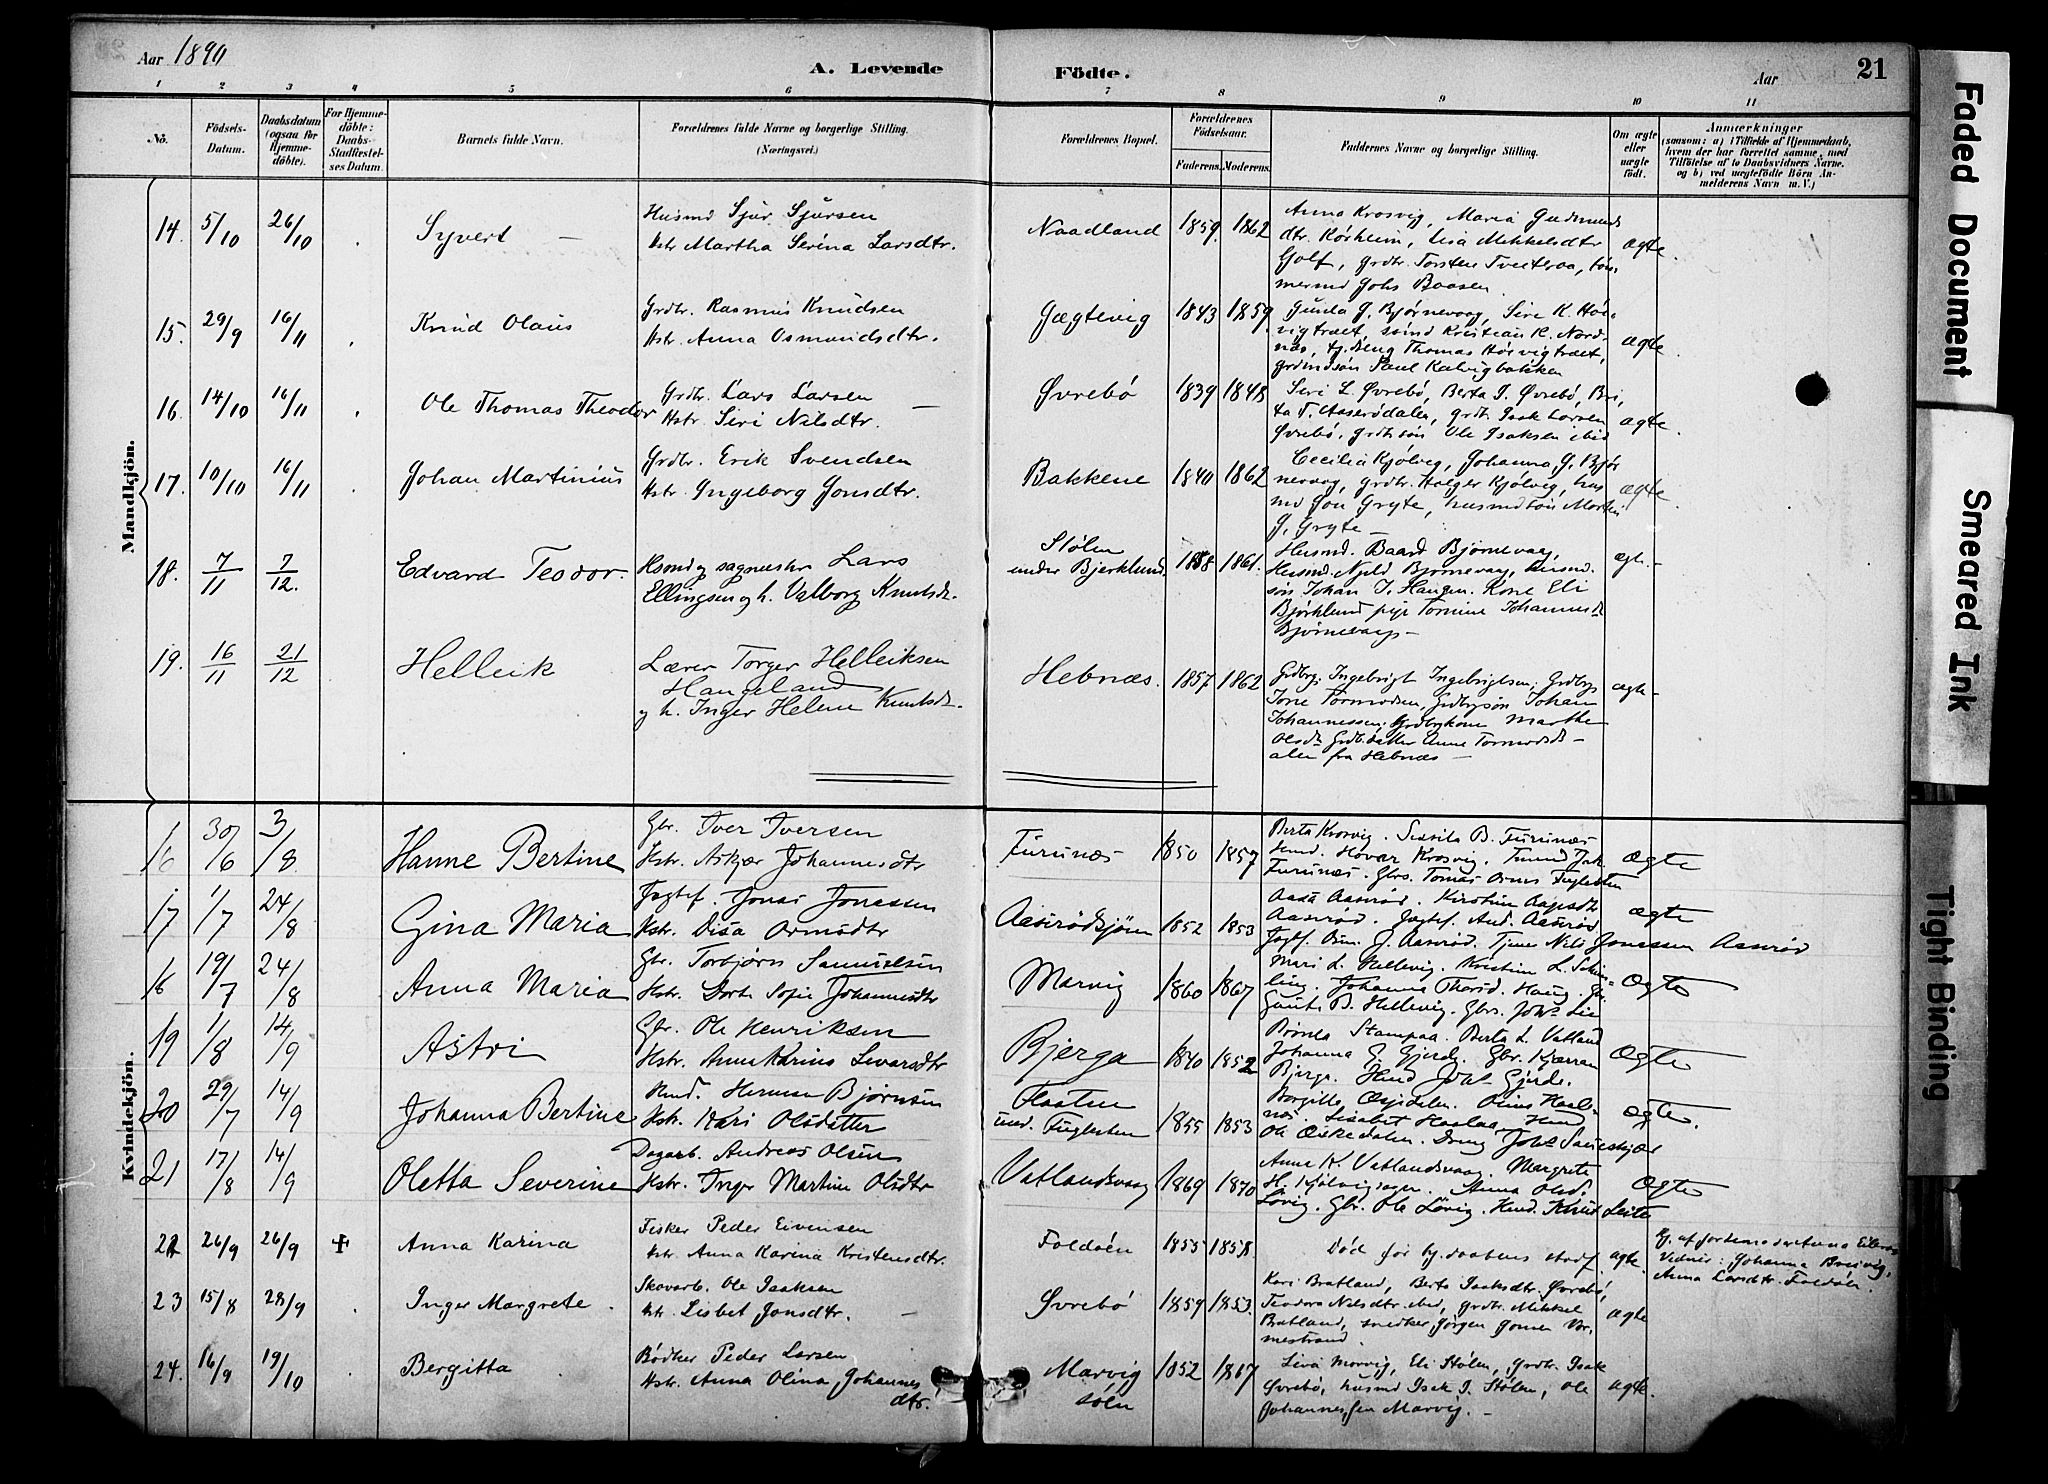 Aar 1890
A. Levende
Födte.
Aar
21
1 2 3 4 5 6 7 8 9 10 11
No.
Födsels-
Datum.
Daabsdatum
(ogsaa for
Hjemme-
döbte).
For Hjemme-
döbte:
Daabs-
Stadfæstel-
ses Datum.
Barnets fulde Navn.
Forældrenes fulde Navne og borgerlige Stilling.
(Næringsvei.)
Forældrenes Bopæl.
Forældrenes
Födselsaar.
Faderens.
Moderens.
Faddernes Navne og borgerlige Stilling.
Om ægte
eller
uægte
født.
Anmærkninger
(saasom: a) i Tilfælde af Hjemmedaab,
hvem der har forrettet samme, med
Tilföielse af to Daabsvidners Navne.
og b) ved uægtefödte Börn An-
melderens Navn m. V.)
Mandkjön.
14. 5/10 26/10 Syvert — Husmd Sjur Sjursen
Hstr Martha Serina Larsdtr. Naadland 1859. 1862 Anna Krosvig, Maria Gudmunds
dtr. Kørheim, Lisa Mikkelsdtr
Golf, grdbr. Torsten Tveiteraa, töm-
mermd Johs Baasen. ægte.
15. 29/9 16/11 Knud Olaus Grdbr. Rasmus Knudsen
Hstr. Anna Osmundsdtr. Gægtevig 1843 1859 Gunla G. Bjørnevaag, Siri K. Hör-
vigtræet, Kristian K. Nord-
næs, Thomas Hörvigtræet,
Paul Kalvigbakken ægte.
16. 14/10 16/11 Ole Thomas Theodor Grdbr. Lars Larsen
Hstr. Siri Nilsdtr. — Øvrebö 1839 1848 Siri L. Øvrebö, Berta I. Øvrebö, Bri-
ta T. Aasrödalen, grdb. Isak Larsen
Øvrebö, grdbrsön Ole Isaksen ibid ægte.
17. 10/10 16/11 Johan Martinius Grdbr. Erik Svendsen
Hstr. Ingeborg Jonsdtr. Bakkene 1840 1862 Cecilia Kjölvig, Johanna G. Björ
nevaag, grdbr. Holger Kjölvig, hus
md Jon Gryte, husmdsön Morten
J. Gryte — ægte.
18. 7/11 7/12. Edvard Teodor. Hsmd og sagmester Lars
Ellingsen og h. Valborg Knutsdt. Stølen
under Bjerklund. 1858 1861. Husmd. Baard Bjørnevaag,
Husmd. Bjørnevaag, husmd.
søn Johan I. Haugen. Kone Eli
Bjørklund pige Tomine Johannesdt
Bjørnevaag — ægte.—
19. 16/11 21/12 Helleik Lærer Torger Helleiksen
Hangeland
og h. Inger Helene Knutsdt. Hebnæs. 1857 1862 Grdbrg. Ingebrigt Ingebrigtsen, Grdbrg
Tore Tormodsen, Grdbrgsøn Johan
Johannessen, Grdbrgkone Marthe
Olsdt Grdb.datter Anne Tormodsdt —
alle fra Hebnæs — ægte—
Kvindekjön.
16 30/6 3/8 Hanne Bertine Gbr. Iver Iversen
Hstr. Askjær Johannesdtr Furunæs 1850 1857 Berta Krosvig. Sissila B. Furunæs
Hmd. Hovar Krosvig.
Furunæs. Gbrs. Tomas Fuglesten ægte
17 1/7 24/8 Gina Maria Jægtef. Jonas Jonassen
Hstr. Disa Ormsdtr Aasrødsjöen 1852 1853 Aasa Aasrød. Kirstine Aagesdtr
Aasrød. Jægtef. And. Aasrød.
Jægtef. J. Aasrød. Tjener Nils Jonassen Aasrød ægte
18 19/7 24/8 Anna Maria Gbr. Torbjørn Samuelsen
Hstr. Dorte Sofie Johannesdtr Marvig 1860 1867 Mari L. Hellevig. Kristine L.
Johanna Haug.
Gaute B. Hellevig. Gbrs. Johs Lie ægte
19 1/8 14/9 Astri Gbr. Ole Henriksen
Hstr. Anne Karine Sivarsdtr Bjerga 1840 1852 Stampaa. Berta L. Vatland
Johanna G. Gjerde. Gbr.
Bjerga. Hmd Johs Gjerde. ægte
20 29/7 14/9 Johanna Bertine Hmd. Herman Bjørnsen
Hstr. Kari Olsdatter Flaaten
und. Fuglesten 1855 1853 Borgilla
Lisabet
Ole Eiskedalen. Dreng Johs ægte.
21 17/8 14/9 Oletta Severine Dagarb. Andreas Olsen
Hstr. Inger Martine Olsdtr Vatlandsvaag 1869 1870 Anne K. Vatlandsvaag. Margrete
H. Anna Olsd.
Løvig. Gbr. Ole Løvig. Hmd. Knud Leite ægte
22 26/9 26/9 Anna Karina Fisker Peder Eivensen
Hstr. Anna Karina Kristensdtr. Foldöen 1855 1858. Död för hj.daabens stadf. ægte. Hj. af
Vidner: Johanna Breivig,
Anna Larsdtr. Foldöen.
23 15/8 28/9 Inger Margrete. Skovarb. Ole Isaksen
Hstr. Lisbet Jonsdtr. — Øvrebö 1859 1853. Kari Bratland, Berta Isaksdtr. Øvrebö,
Teodora Nilsdtr. ibid, grdbr. Mikkel
Bratland, snedker Jörgen Vor-
mestrand. ægte
24. 16/9 19/10 Bergitta Bödker Peder Larsen
Hstr. Anna Olina Johannes
dtr. Marvig
söen 1852 1867 Siva Marvig, Eli Stölen, grdbr. Isak
Øvrebö, husmd Isak I. Stölen, Ole
Johannessen Marvig. — ægte.
Faded Document
Smeared Ink
Tight Binding